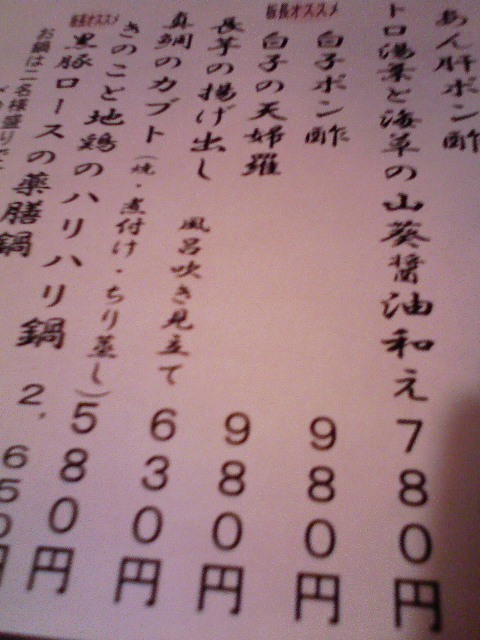 あん肝ポン酢
トロ湯葉と海草の山葵醤油和え 780円
板長オススメ
白子ポン酢 980円
白子の天婦羅 980円
長芋の揚げ出し 風呂吹き見立て 630円
真鯛のカブト(焼・煮付け・ちり蒸し) 580円
きのこと地鶏のハリハリ鍋 2,650円
板長オススメ
黒豚ロースの薬膳鍋
お鍋は二名様盛りで